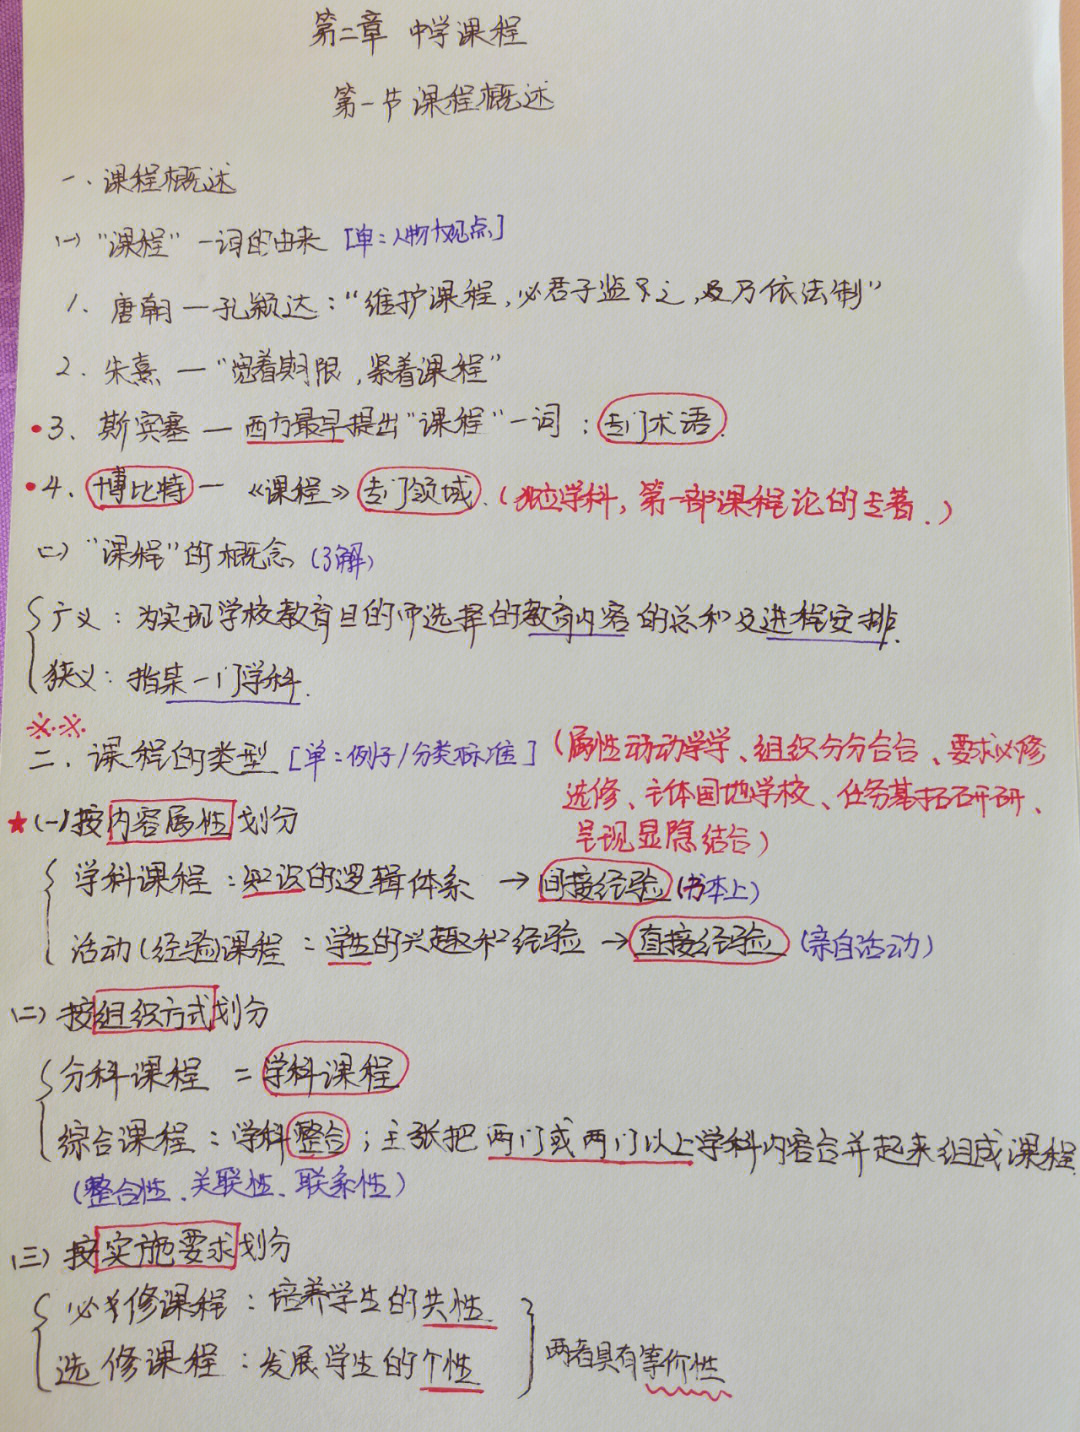 第二章 中学课程
第一节 课程概述
一、课程概述
(一) “课程”一词的由来 [单:人物+观点]
1. 唐朝—孔颖达:“维护课程,必君子监之,乃依法制”
2. 朱熹—“宽着期限,紧着课程”
3. 斯宾塞—西方最早提出“课程”一词:专门术语.
4. 博比特—《课程》专门领域.(独立学科,第一部课程论的专著.)
(二) “课程”的概念 (了解)
广义:为实现学校教育目的所选择的教育内容的总和及进程安排.
狭义:指某一门学科.
※※
二、课程的类型 [单:例子/分类标准] (属性动动学学、组织分分合合、要求必修
选修、主体国地学校、任务基拓研研、
呈现显隐结合)
★(一)按内容属性划分
学科课程:知识的逻辑体系 → 间接经验 (书本上)
活动(经验)课程:学生的兴趣和经验 → 直接经验 (亲自活动)
(二) 按组织方式划分
分科课程 = 学科课程
综合课程:学科整合;主张把两门或两门以上学科内容合并起来组成课程
(整合性、关联性、联系性)
(三) 按实施要求划分
必修课程:培养学生的共性
选修课程:发展学生的个性
两者具有等价性